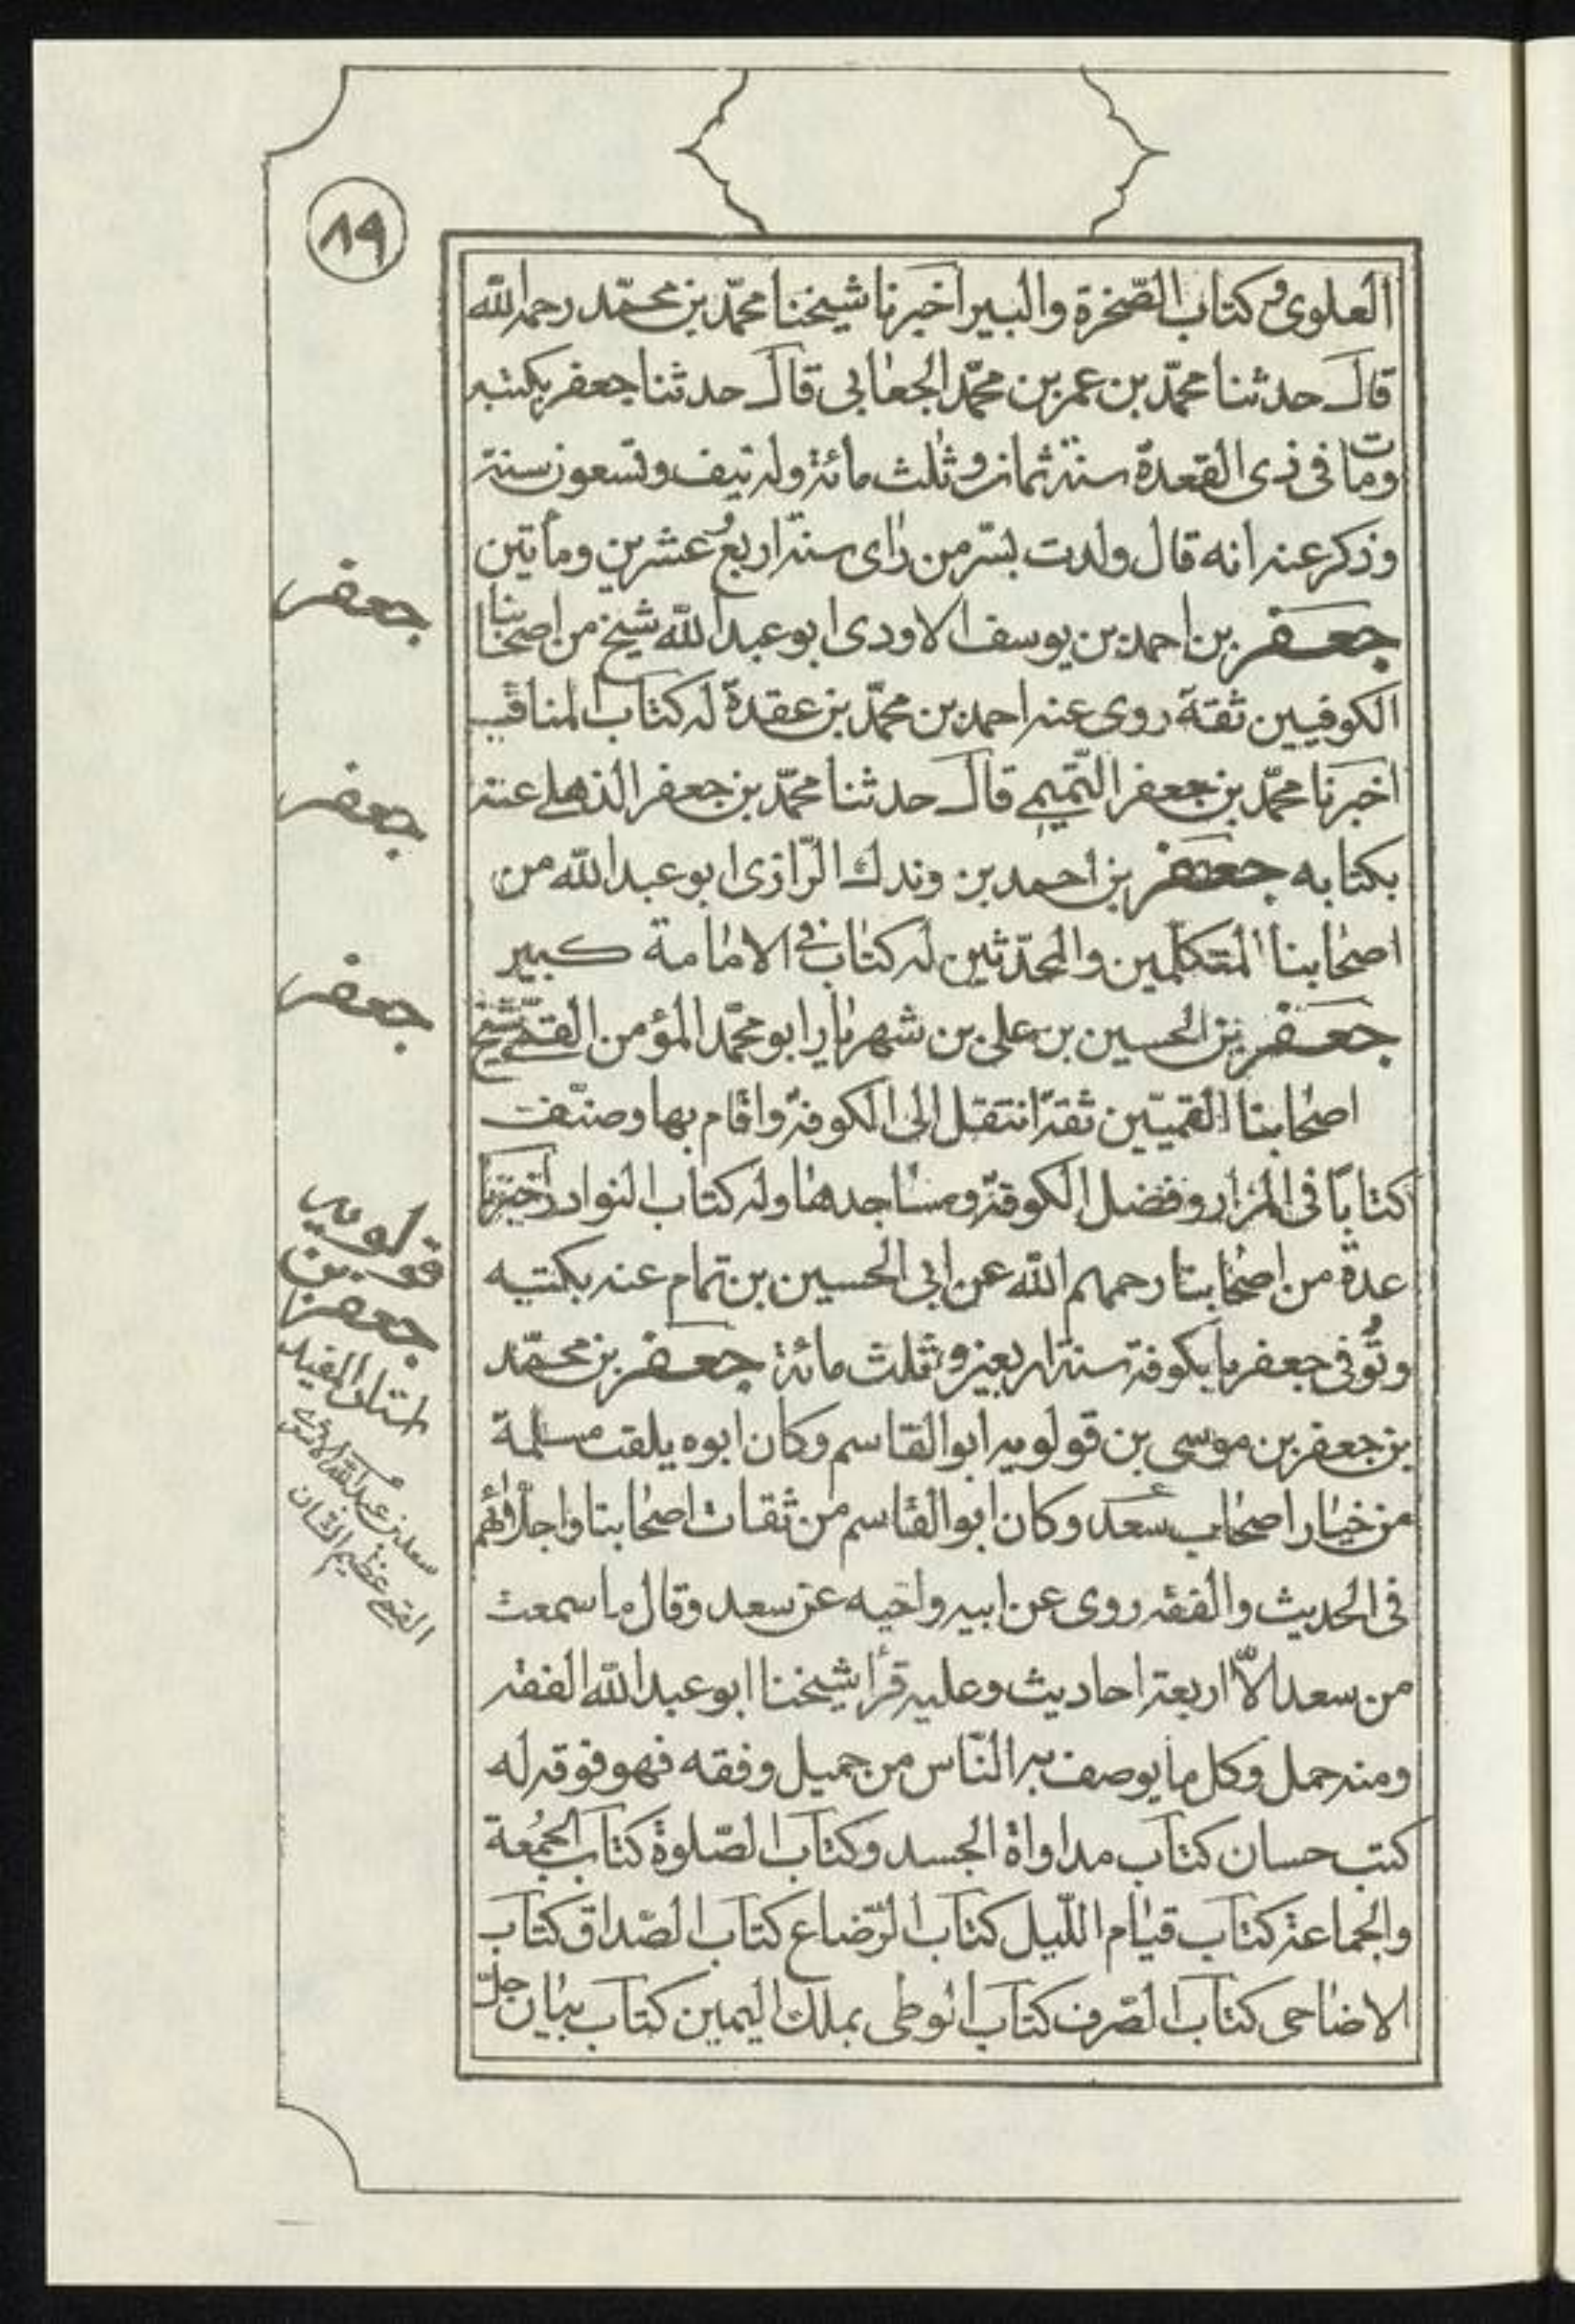 ٨٩
العلوى و كتاب الصّخرة والبير اخبرنا شيخنا محمّد بن محمّد رحمه الله
قال حدثنا محمّد بن عمر بن محمّد الجعابى قال حدثنا جعفر بكتبه
ومات فى ذى القعدة سنة ثمان وثلث مائة وله نيف وتسعون سنة
وذكر عنه انه قال ولدت بسّر من رأى سنة اربع وعشرين ومأتين
جعفر بن احمد بن يوسف الاودى ابو عبد الله شيخ من اصحابنا
الكوفيين ثقة روى عنه احمد بن محمّد بن عقدة له كتاب المناقب
اخبرنا محمّد بن جعفر التّميمى قال حدثنا محمّد بن جعفر الذهلى عنه
بكتابه جعفر بن احمد بن وندك الرّازى ابو عبد الله من
اصحابنا المتكلّمين والمحدّثين له كتاب فى الامامة كبير
جعفر بن الحسين بن على بن شهريار ابو محمّد المؤمن القمّى شيخ
اصحابنا القميّين ثقة انتقل الى الكوفة واقام بها وصنّف
كتابًا فى المزار وفضل الكوفة ومساجدها وله كتاب النوادر اخبرنا
عدة من اصحابنا رحمهم الله عن ابى الحسين بن تمام عنه بكتبه
وتُوفى جعفر بالكوفة سنة اربعين وثلث مائة جعفر بن محمّد
بن جعفر بن موسى بن قولويه ابو القاسم وكان ابوه يلقب مسلمة
من خيار اصحاب سعد وكان ابو القاسم من ثقات اصحابنا واجلّائهم
فى الحديث والفقه روى عن ابيه واخيه عن سعد وقال ما سمعت
من سعد الاّ اربعة احاديث وعليه قرأ شيخنا ابو عبد الله الفقه
ومنه حمل وكل ما يوصف به النّاس من جميل وفقه فهو فوقه له
كتب حسان كتاب مداواة الجسد وكتاب الصّلوة كتاب الجمُعة
والجماعة كتاب قيام اللّيل كتاب الرّضاع كتاب الصّداق كتاب
الاضاحى كتاب الصّرف كتاب الوطى بملك اليمين كتاب بيان حلّ
جعفر
جعفر
جعفر
قولويه
جعفر بن
استاد المفيد
سعد بن عبد الله الاشعرى
القمى عظيم الشان